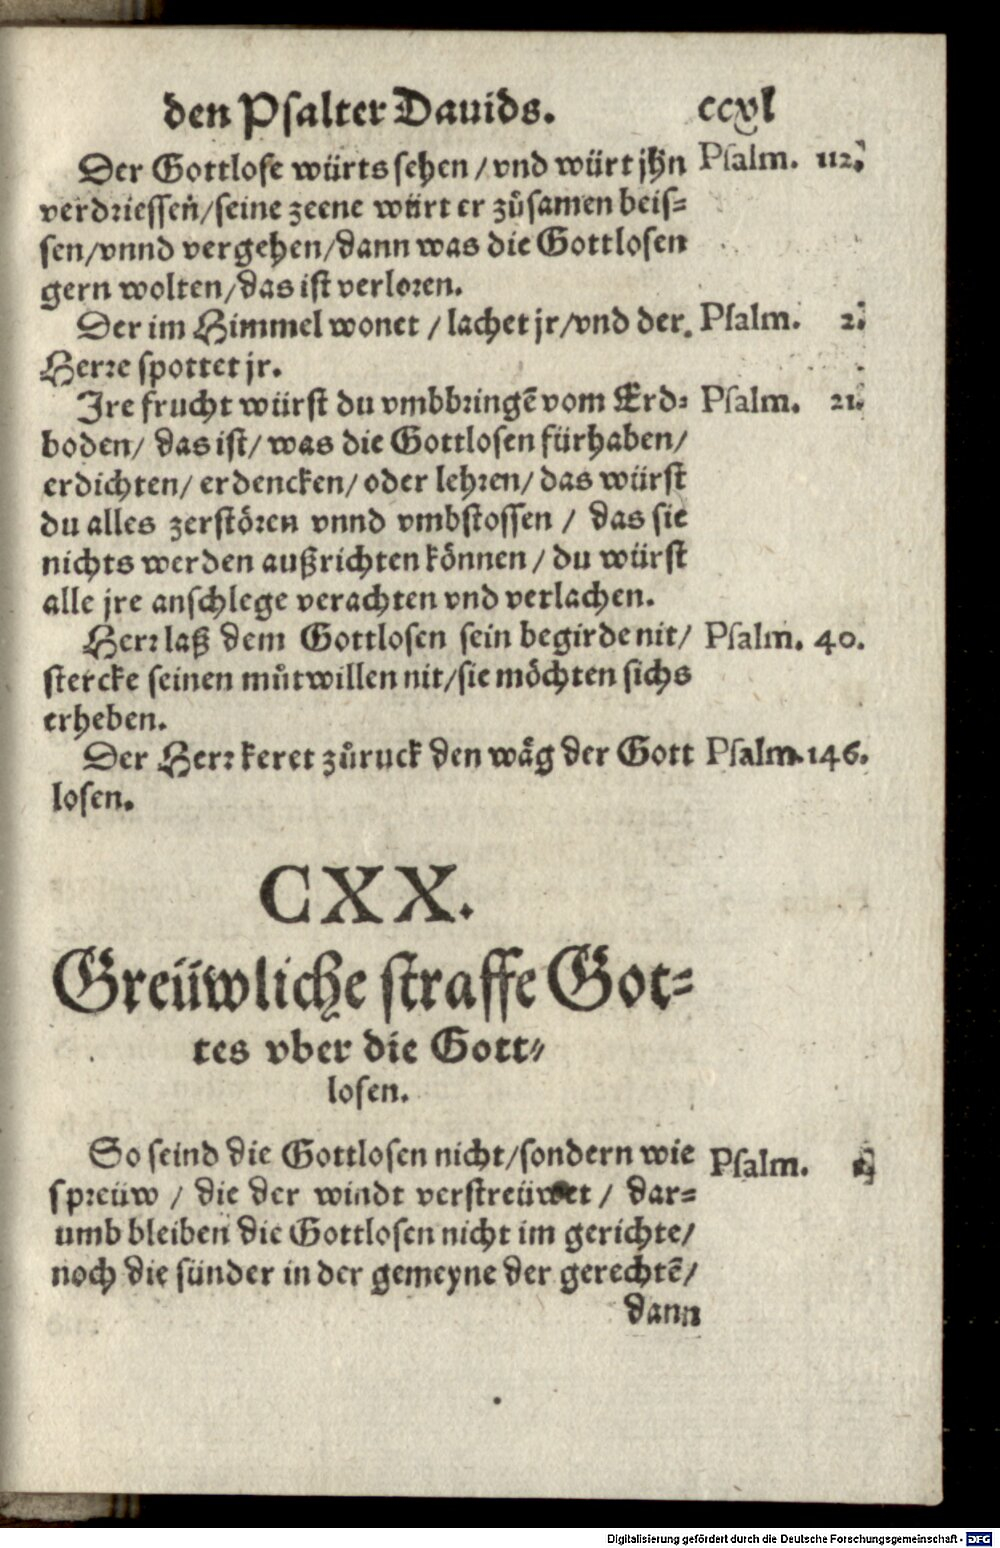 den Psalter Dauids. ccxl
Der Gottlose würts sehen / vnd würt jhn Psalm. 112.
verdriessen / seine zeene würt er zůsamen beis=
sen / vnnd vergehen / dann was die Gottlosen
gern wolten / das ist verloren.
Der im Himmel wonet / lachet jr / vnd der Psalm. 2.
Herre spottet jr.
Ire frucht würst du vmbbringē vom Erd= Psalm. 21.
boden / das ist / was die Gottlosen fürhaben /
erdichten / erdencken / oder lehren / das würst
du alles zerstören vnnd vmbstossen / das sie
nichts werden außrichten können / du würst
alle jre anschlege verachten vnd verlachen.
Herr laß dem Gottlosen sein begirde nit / Psalm. 40.
stercke seinen můtwillen nit / sie möchten sichs
erheben.
Der Herr keret zůruck den wäg der Gott Psalm. 146.
losen.
CXX.
Greüwliche straffe Got=
tes vber die Gott=
losen.
So seind die Gottlosen nicht / sondern wie Psalm.
spreüw / die der windt verstreüwet / dar=
umb bleiben die Gottlosen nicht im gerichte /
noch die sünder in der gemeyne der gerechtē /
dann
Digitalisierung gefördert durch die Deutsche Forschungsgemeinschaft - DFG